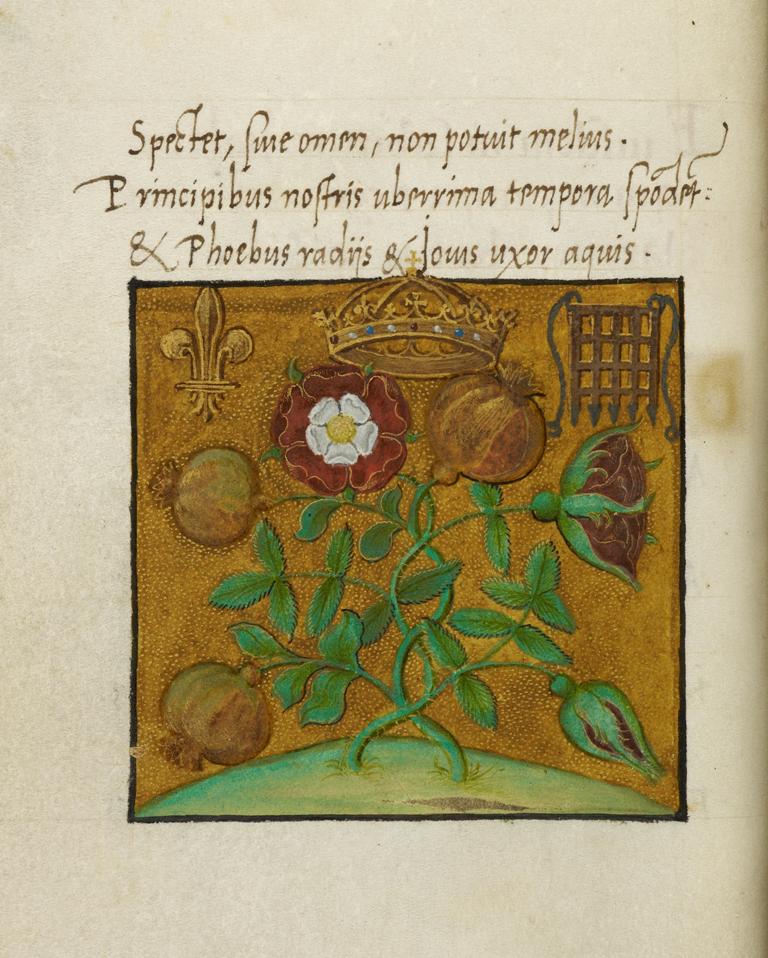 Spectet, siue omen, non potuit melius.
Principibus nostris uberrima tempora spōdet:
& Phoebus radijs & Iouis uxor aquis.